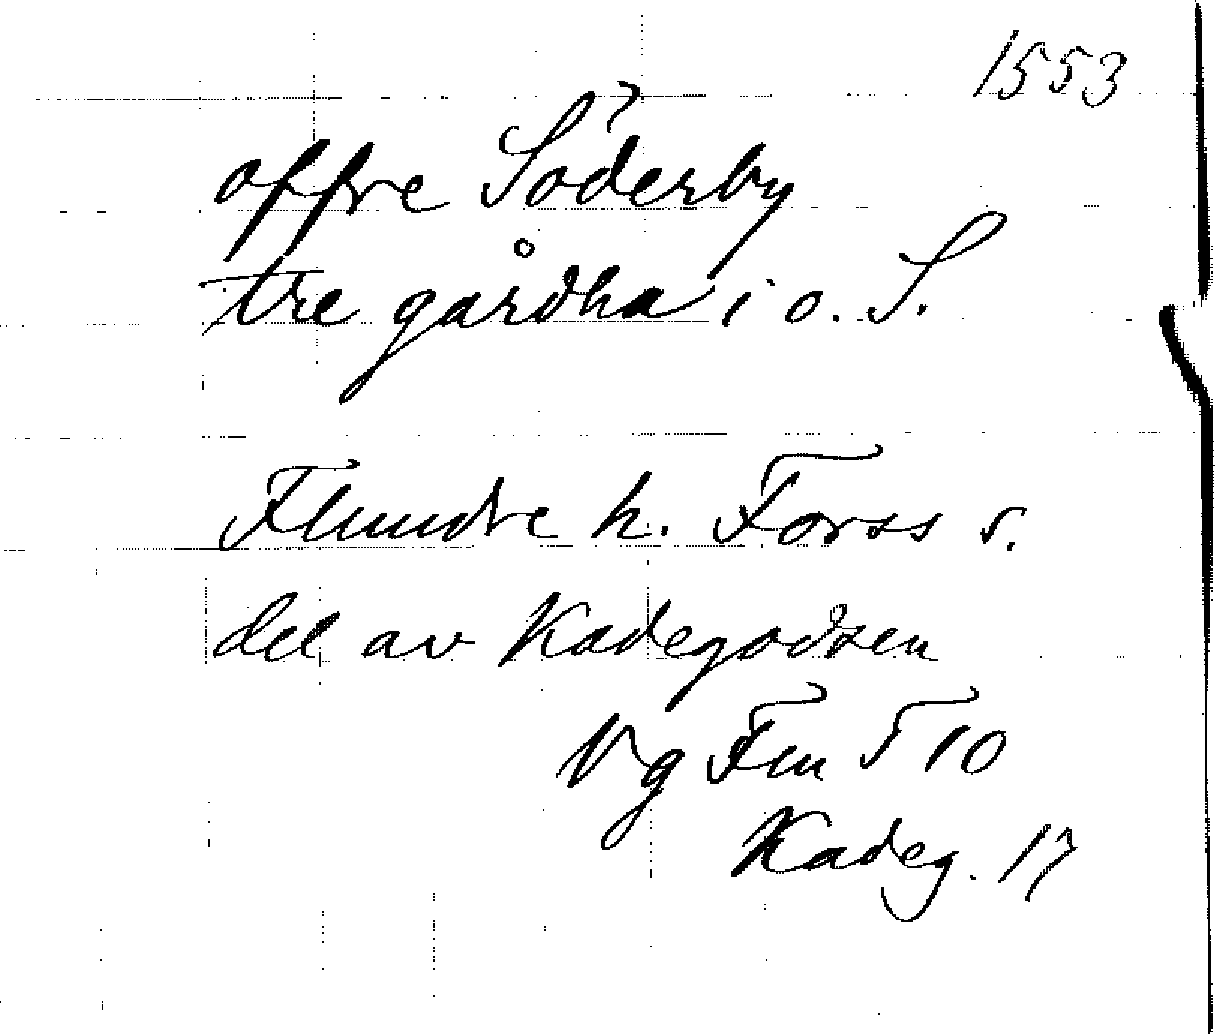 1553
offre Söderby
tre gårdha i o. S.
Flundre h. Forss s.
del av Kadegodsen
Vg Fln 5 10
Kadeg. 17